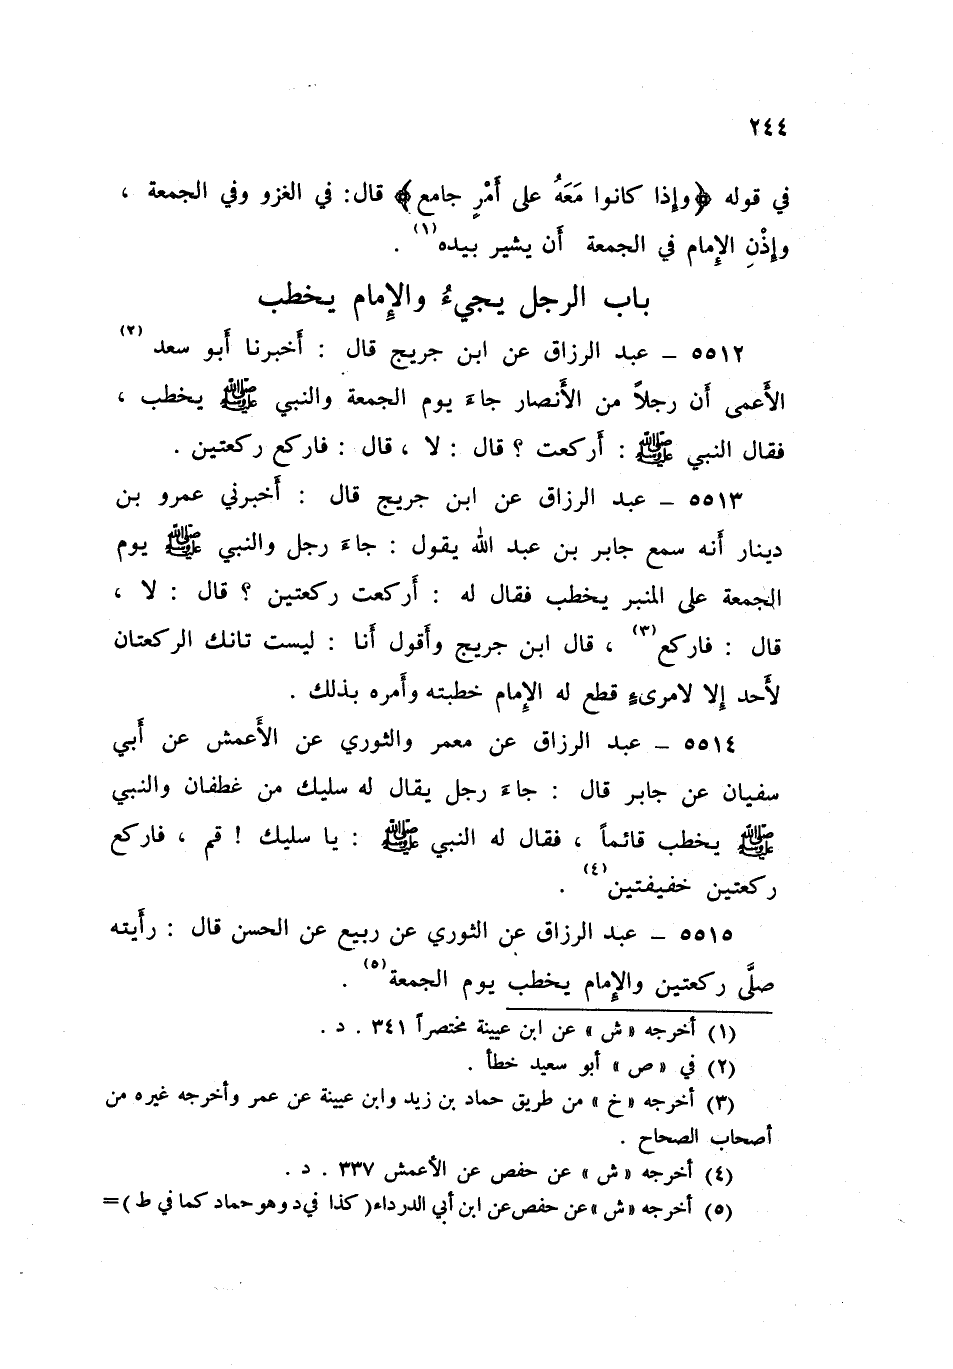 ٢٤٤
في قوله ﴿وإذا كانوا مَعَهُ على أَمْرٍ جامع﴾ قال: في الغزو وفي الجمعة ،
وإذْنِ الإمام في الجمعة أَن يشير بيده(١) .
باب الرجل يجيءُ والإمام يخطب
٥٥١٢ ـ عبد الرزاق عن ابن جريج قال : أَخبرنا أَبو سعد (٢)
الأَعمى أَن رجلاً من الأَنصار جاءَ يوم الجمعة والنبي ﷺ يخطب ،
فقال النبي ﷺ : أَركعت ؟ قال : لا ، قال : فاركع ركعتين .
٥٥١٣ ـ عبد الرزاق عن ابن جريج قال : أَخبرني عمرو بن
دينار أَنه سمع جابر بن عبد الله يقول : جاءَ رجل والنبي ﷺ يوم
الجمعة على المنبر يخطب فقال له : أَركعت ركعتين ؟ قال : لا ،
قال : فاركع(٣) ، قال ابن جريج وأَقول أَنا : ليست تانك الركعتان
لأَحد إلا لامرىءٍ قطع له الإمام خطبته وأَمره بذلك .
٥٥١٤ ـ عبد الرزاق عن معمر والثوري عن الأَعمش عن أَبي
سفيان عن جابر قال : جاءَ رجل يقال له سليك من غطفان والنبي
ﷺ يخطب قائماً ، فقال له النبي ﷺ : يا سليك ! قم ، فاركع
ركعتين خفيفتين(٤) .
٥٥١٥ ـ عبد الرزاق عن الثوري عن ربيع عن الحسن قال : رأَيته
صلَّى ركعتين والإمام يخطب يوم الجمعة(٥) .
(١) أخرجه «ش» عن ابن عيينة مختصراً ٣٤١ . د .
(٢) في «ص» أبو سعيد خطأ .
(٣) أخرجه «خ» من طريق حماد بن زيد وابن عيينة عن عمر وأخرجه غيره من
أصحاب الصحاح .
(٤) أخرجه «ش» عن حفص عن الأعمش ٣٣٧ . د .
(٥) أخرجه «ش» عن حفص عن ابن أبي الدرداء( كذا في د وهو حماد كما في ط )=